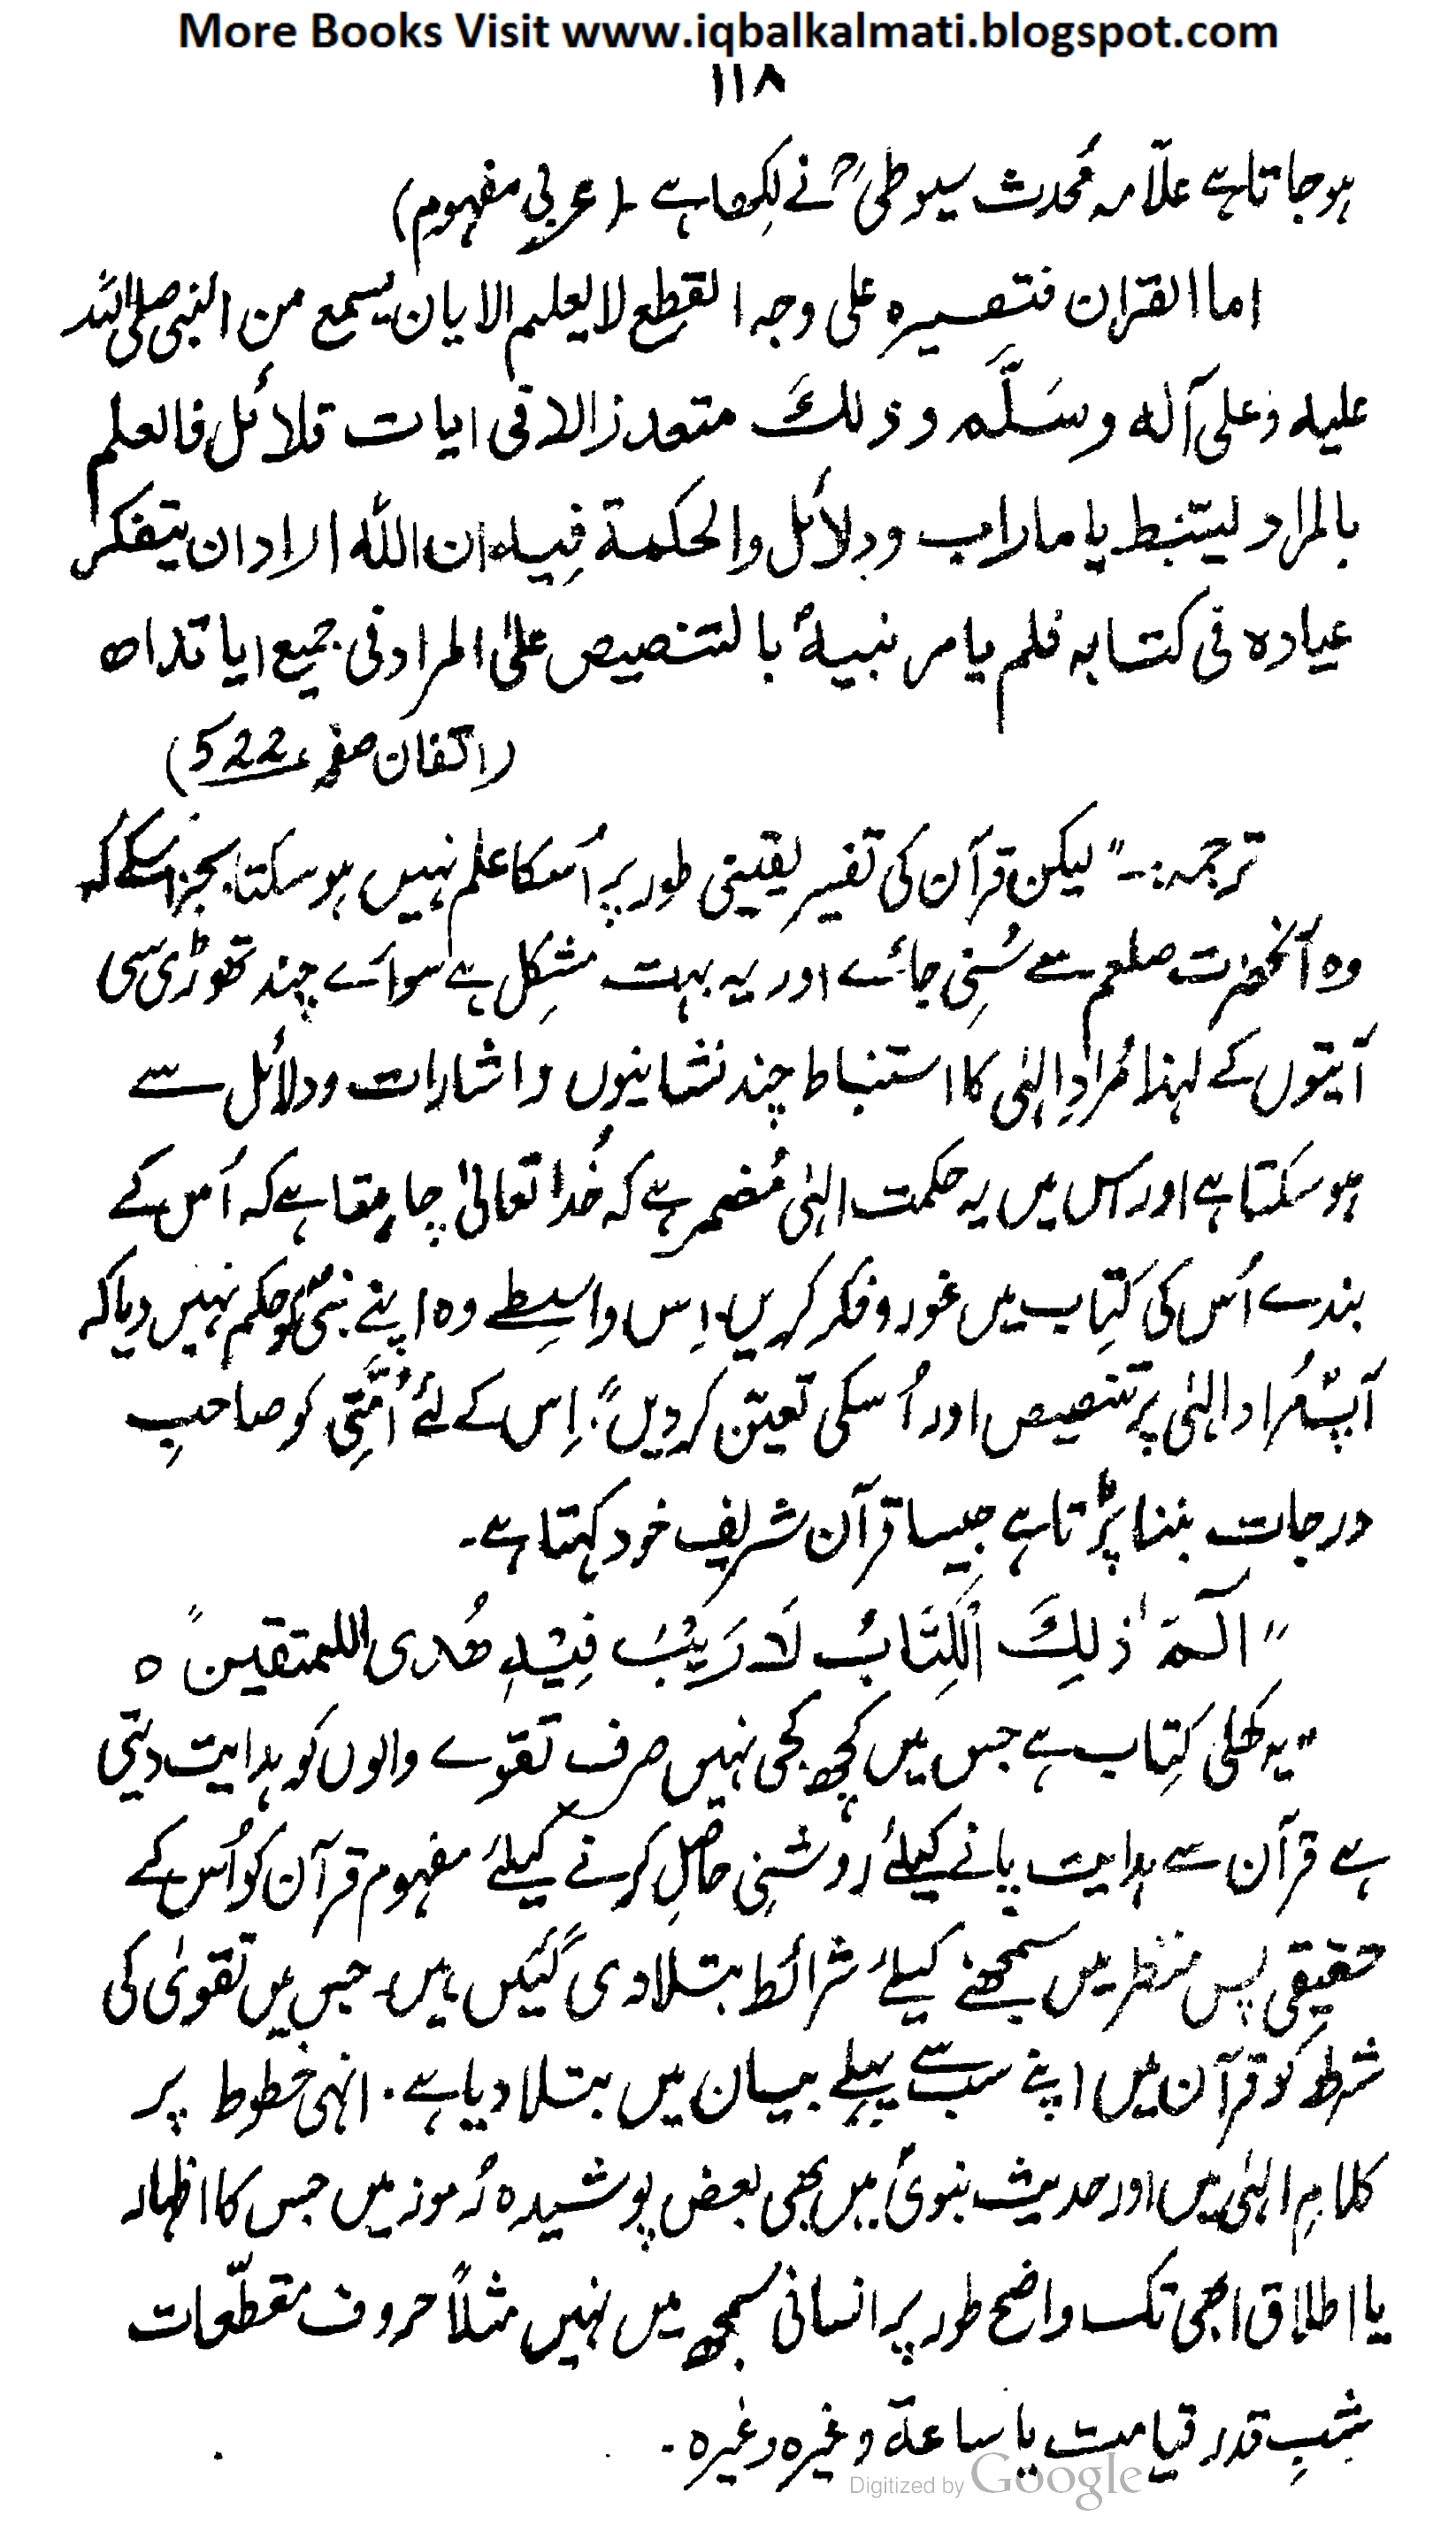 More Books Visit www.iqbalkalmati.blogspot.com
۱۱۸
ہو جاتا ہے علاّمہ مُحدث سیوطیؒ نے لِکھا ہے ۔ (عربی مفہوم)
اما القران فتفسیرہ علی وجہ القطع لا یعلم الا یان یسمع من النبی صلی اللہ
علیہ وعلی آلہ وسَلَّم وذلکَ متعدز الا فی ایات قلائل فالعلم
بالمراد لیتنبط یا ماراب ودلائل والحکمة فِیہ ان اللّٰہ اراد ان یتفکر
عیادہ فی کتابہ فلم یا مر نبیہؐ بالتنصیص علیٰ المراد فی جمیع ایاتہ اھ
(اتقان صفحہ 522)
ترجمہ:۔ “لیکن قرآن کی تفسیر یقینی طور پر اُسکا علم نہیں ہو سکتا بجز اسکے کہ
وہ آنحضرت صلعم سے سُنِی جائے اور یہ بہت مشِکل ہے سوائے چند تھوڑی سی
آیتوں کے لہٰذا مُرادِ الہٰی کا استنباط چند نشانیوں و اشارات و دلائل سے
ہو سکتا ہے اور اس میں یہ حکمت الہٰی مُضمر ہے کہ خُدا تعالیٰ چاہتا ہے کہ اُس کے
بندے اُس کی کتِاب میں غور و فکر کریں۔ اِس واسِطے وہ اپنے نبیؐ کو حکم نہیں دیا کہ
آپؐ مُراد الہٰی پر تنصیص اور اُسکی تعیّن کر دیں”۔ اِس کے لئے اُمَّتِی کو صاحبِ
درجات بننا پڑتا ہے جیسا قرآن شریف خود کہتا ہے۔
“الٓمّٓ ذٰلِکَ الْکِتَابُ لَا رَیْبَ فِیْہِ ھُدی اللمتقین” ہ
“یہ کھلی کتِاب ہے جس میں کُچھ کجی نہیں صرف تقوے والوں کو ہدایت دیتی
ہے قرآن سے ہدایت پانے کیلئے روشنِی حاصِل کرنے کیلئے مفہوم قرآن کو اُس کے
حقیقی پس منظر میں سمجھنے کیلئے شرائط بتلا دی گئیں ہیں۔ جس میں تقویٰ کی
شرط کو قرآن میں اپنے سب سے پہلے بیان میں بتلا دیا ہے۔ انہی خطوط پر
کلامِ الہٰی میں اور حدیث نبویؐ میں بھی بعض پوشیدہ رُموز میں جس کا اظہار
یا اطلاق ابھی تک واضح طور پر انسانی سمجھ میں نہیں مثلاً حروف مقطّعات
شبِ قدر قیامت یا ساعة وغیرہ وغیرہ ۔
Digitized by Google